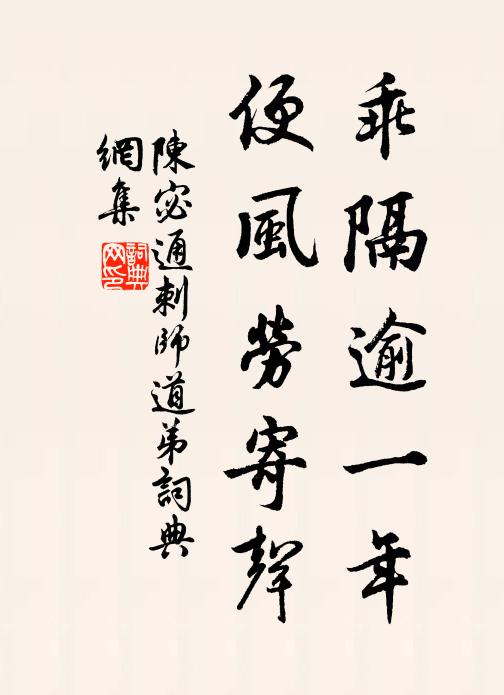 乖隔逾一年
便風勞寄聲
陳宓通刺師道弟詞典
網集
詞典网印